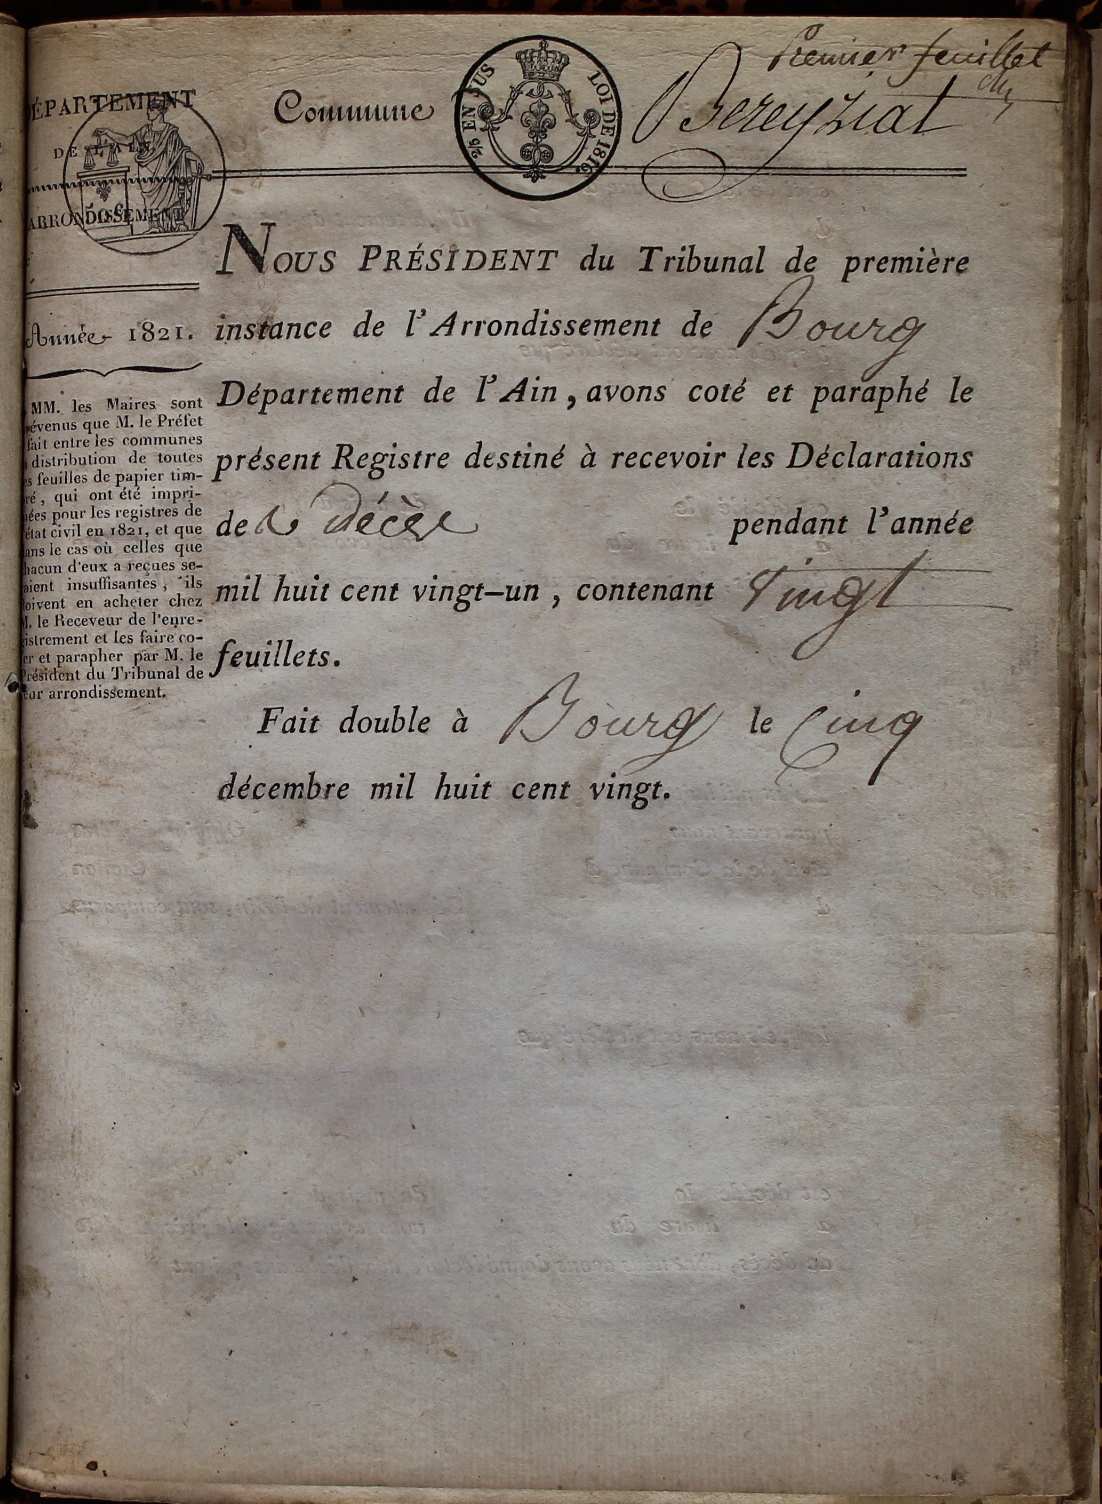 Premier feuillet
Commune
Bereyziat
2/5 EN SUS
LOI DE 1816.
DÉPARTEMENT
DE L'AIN
ARRONDISSEMENT
Année 1821.
MM. les Maires sont
prévenus que M. le Préfet
fait entre les communes
distribution de toutes
feuilles de papier tim-
bré, qui ont été impri-
mées pour les registres de
état civil en 1821, et que
dans le cas où celles que
chacun d'eux a reçues se-
raient insuffisantes, ils
doivent en acheter chez
M. le Receveur de l'enre-
gistrement et les faire co-
ter et parapher par M. le
Président du Tribunal de
leur arrondissement.
NOUS PRÉSIDENT du Tribunal de première
instance de l'Arrondissement de Bourg
Département de l'Ain, avons coté et paraphé le
présent Registre destiné à recevoir les Déclarations
de décès pendant l'année
mil huit cent vingt-un, contenant vingt
feuillets.
Fait double à Bourg le cinq
décembre mil huit cent vingt.